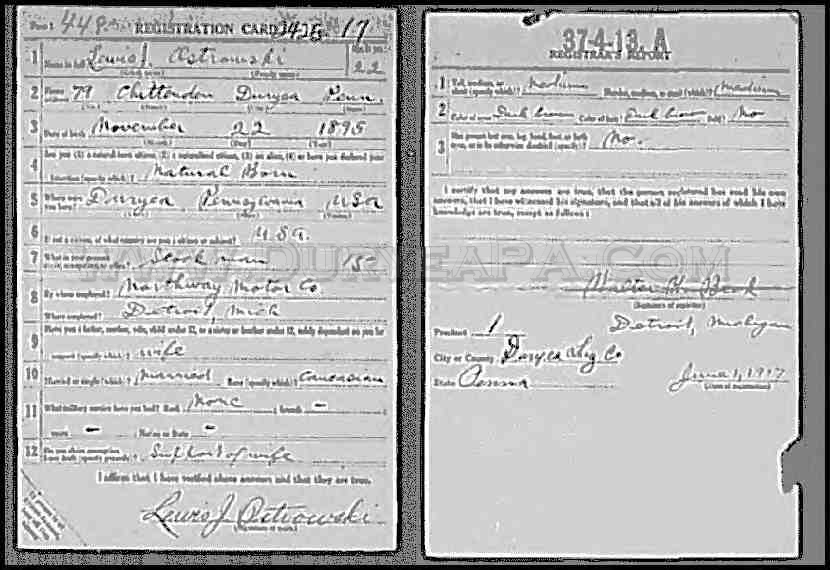 Form 1
REGISTRATION CARD
17
1 Name in full Lewis J. Ostrowski
22
(Given name) (Family name)
2 Home address 79 Chittendon Duryea Penn.
(No.) (Street) (City) (State)
3 Date of birth November 22 1895
(Month) (Day) (Year)
4 Are you (1) a natural-born citizen, (2) a naturalized citizen, (3) an alien, (4) or have you declared your
intention (specify which)? Natural Born
5 Where were you born? Duryea Pennsylvania USA
6 If not a citizen, of what country are you a citizen or subject? USA.
7 What is your present trade, occupation, or office? Stock man
8 By whom employed? Northway Motor Co
Where employed? Detroit, Mich
9 Have you a father, mother, wife, child under 12, or a sister or brother under 12, solely dependent on you for
support (specify which)? wife
10 Married or single (which)? Married Race (specify which)? Caucasian
11 What military service have you had? Rank None branch -
years - Nation or State -
12 Do you claim exemption from draft (specify grounds)? Support of wife
I affirm that I have verified above answers and that they are true.
Lewis J Ostrowski
37-4-13. A
REGISTRAR'S REPORT
1 Tall, medium, or short (specify which)? Medium Slender, medium, or stout (which)? Medium
2 Color of eyes Dark brown Color of hair Dark brown Bald? No
3 Has person lost arm, leg, hand, foot, or both eyes, or is he otherwise disabled (specify)? No.
I certify that my answers are true, that the person registered has read his own
answers, that I have witnessed his signature, and that all of his answers of which I have
knowledge are true, except as follows:
WWW.DURYEAPA.COM
Walter
(Signature of registrar)
Detroit, Michigan
Precinct 1
City or County Duryea Luz Co
State Penna
June 1, 1917
(Date of registration)